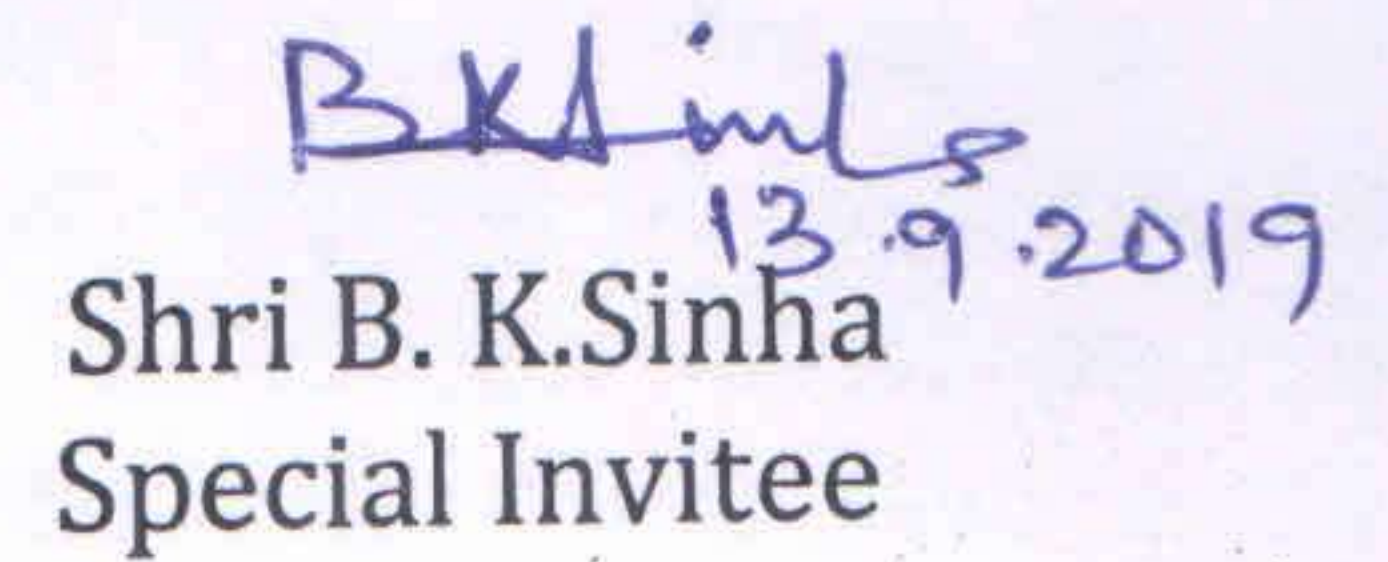 BKSinha
13.9.2019
Shri B. K.Sinha
Special Invitee